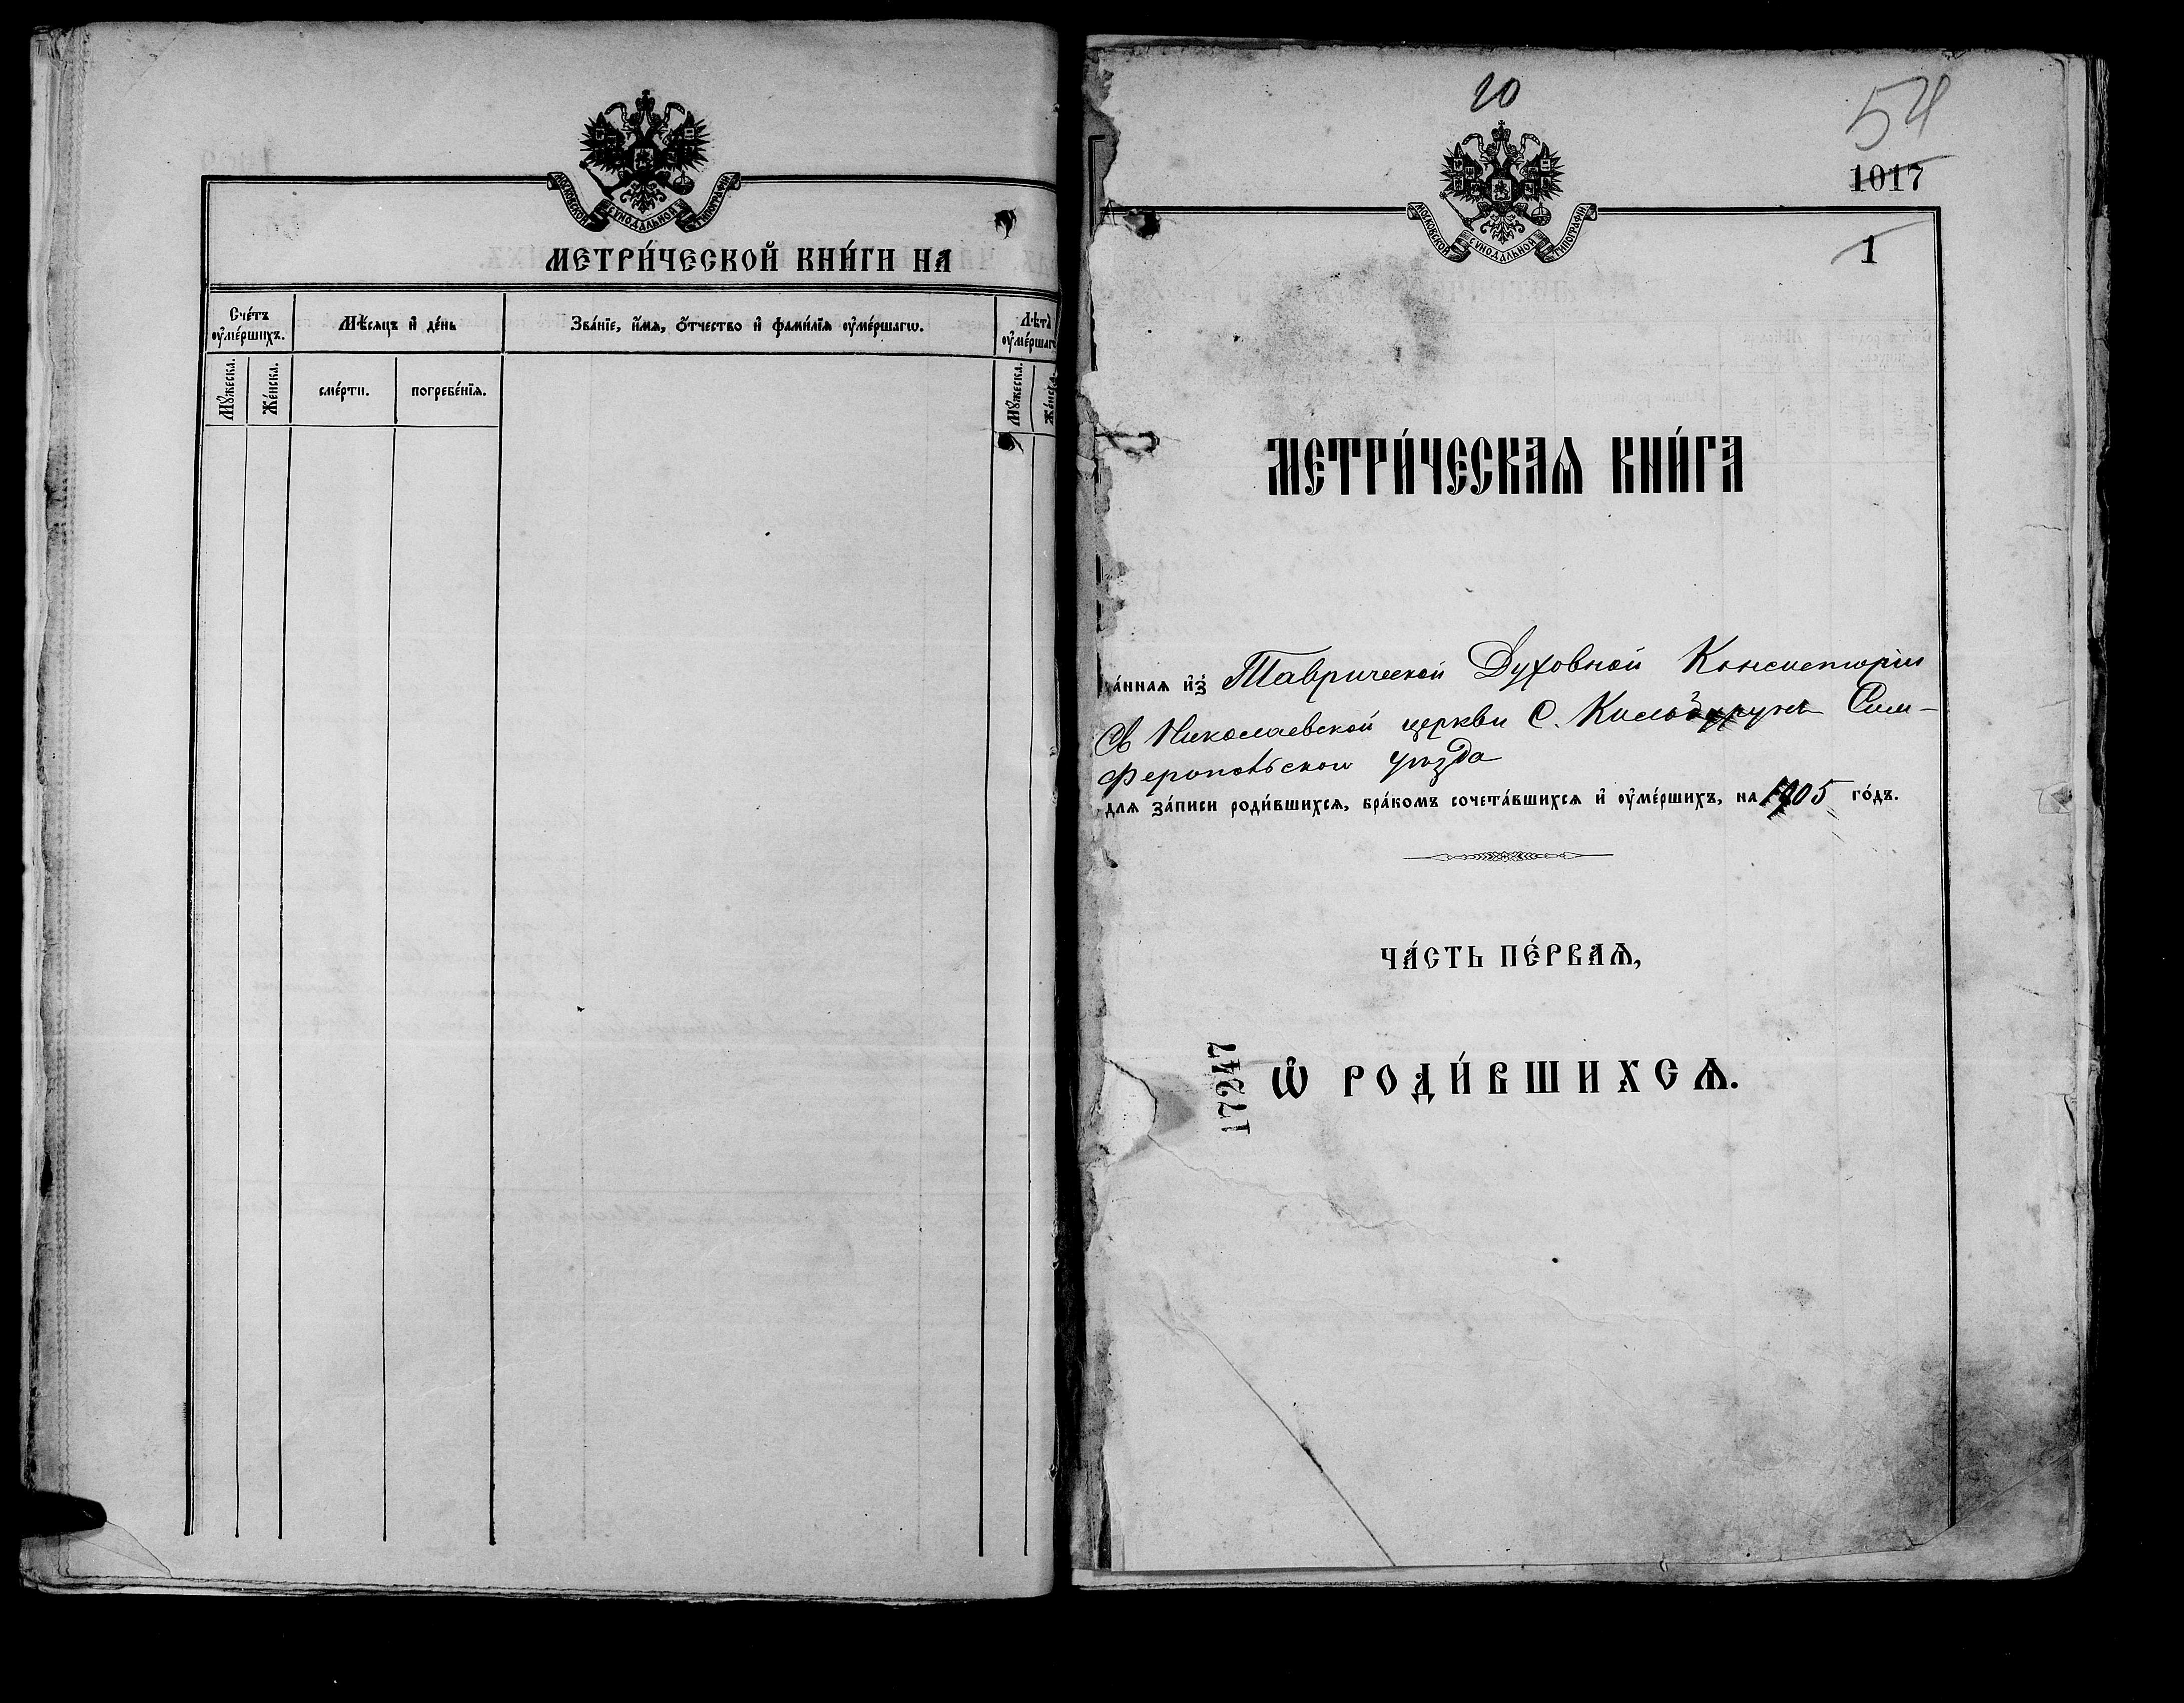 МОСКОВСКОЙ СѴНОДАЛЬНОЙ ТИПОГРАФІИ
МЕТРИ́ЧЕСКОЙ КНИ́ГИ НА
Сче́тъ оу҆ме́ршихъ.
Мѣ́сяцъ и҆ де́нь
Зва́нїе, и҆́мѧ, ѻ҆́тчество и҆ фами́лїѧ оу҆ме́ршагѡ.
Лѣ̑та̀ оу҆ме́ршаг
Мꙋ́жеска.
Же́нска.
сме́рти.
погребе́нїѧ.
Мꙋ́жеска.
Же́нска.
20
54
1017
МОСКОВСКОЙ СѴНОДАЛЬНОЙ ТИПОГРАФІИ
1
МЕТРИ́ЧЕСКАѦ КНИ́ГА
а́ннаѧ и҆з̾ Таврической Духовной Консисторіи
Св Николаевской церкви С. Сим-
феропольскаго уѣзда
длѧ за́писи роди́вшихсѧ, бра́комъ сочета́вшихсѧ и҆ оу҆ме́ршихъ, на 1905 го́дъ.
ЧА́СТЬ ПЕ́РВАѦ,
Ѡ҆ РОДИ́ВШИХСѦ.
17247